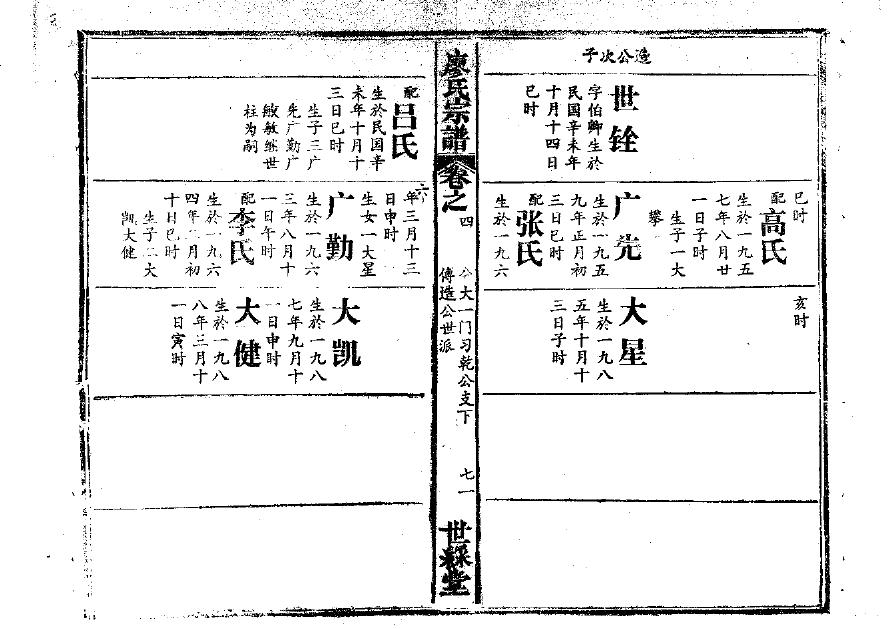 造公次子
世铨
字伯卿生於
民国辛未年
十月十四日
巳时
配
吕氏
生於民国辛
未年十月十
三日巳时
生子三广
先广勤广
敏敏继世
柱为嗣
廖氏宗譜
卷之
四
公大一门习乾公支下
傅造公世派
七一
世綵堂
巳时
配
高氏
生於一九五
七年八月廿
一日子时
生子一大
攀
广先
生於一九五
九年正月初
三日巳时
配
张氏
生於一九六
六
年三月十三
日申时
生女一大星
广勤
生於一九六
三年八月十
一日午时
配
李氏
生於一九六
四年二月初
十日巳时
生子二大
凯大健
亥时
大星
生於一九八
五年十月十
三日子时
大凯
生於一九八
七年九月十
一日申时
大健
生於一九八
八年三月十
一日寅时